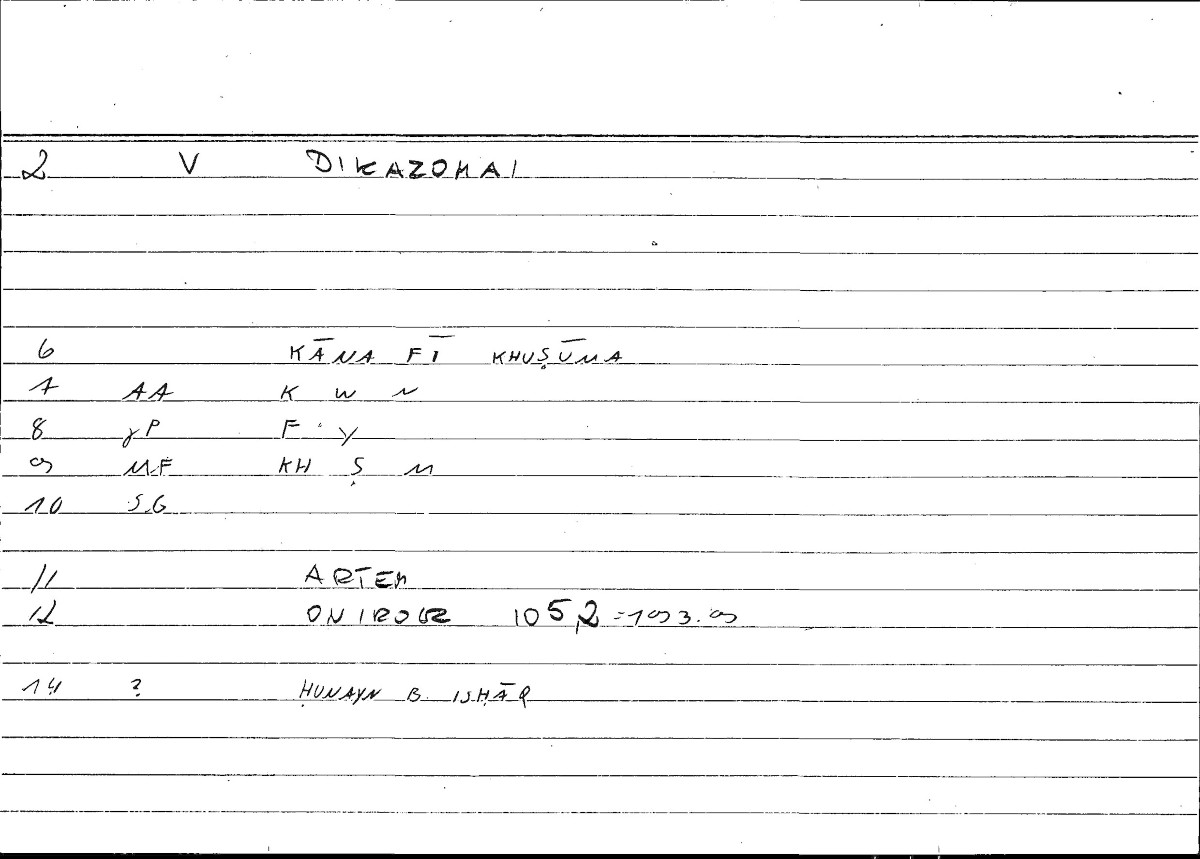 2 V DIKAZOMAI
6 KĀNA FĪ KHUṢŪMA
7 AA K W N
8 γP F Y
9 MF KH Ṣ M
10 SG
11 ARTEM
12 ONIROCR 105,2 = 193.9
14 ? ḤUNAYN B. ISḤĀQ